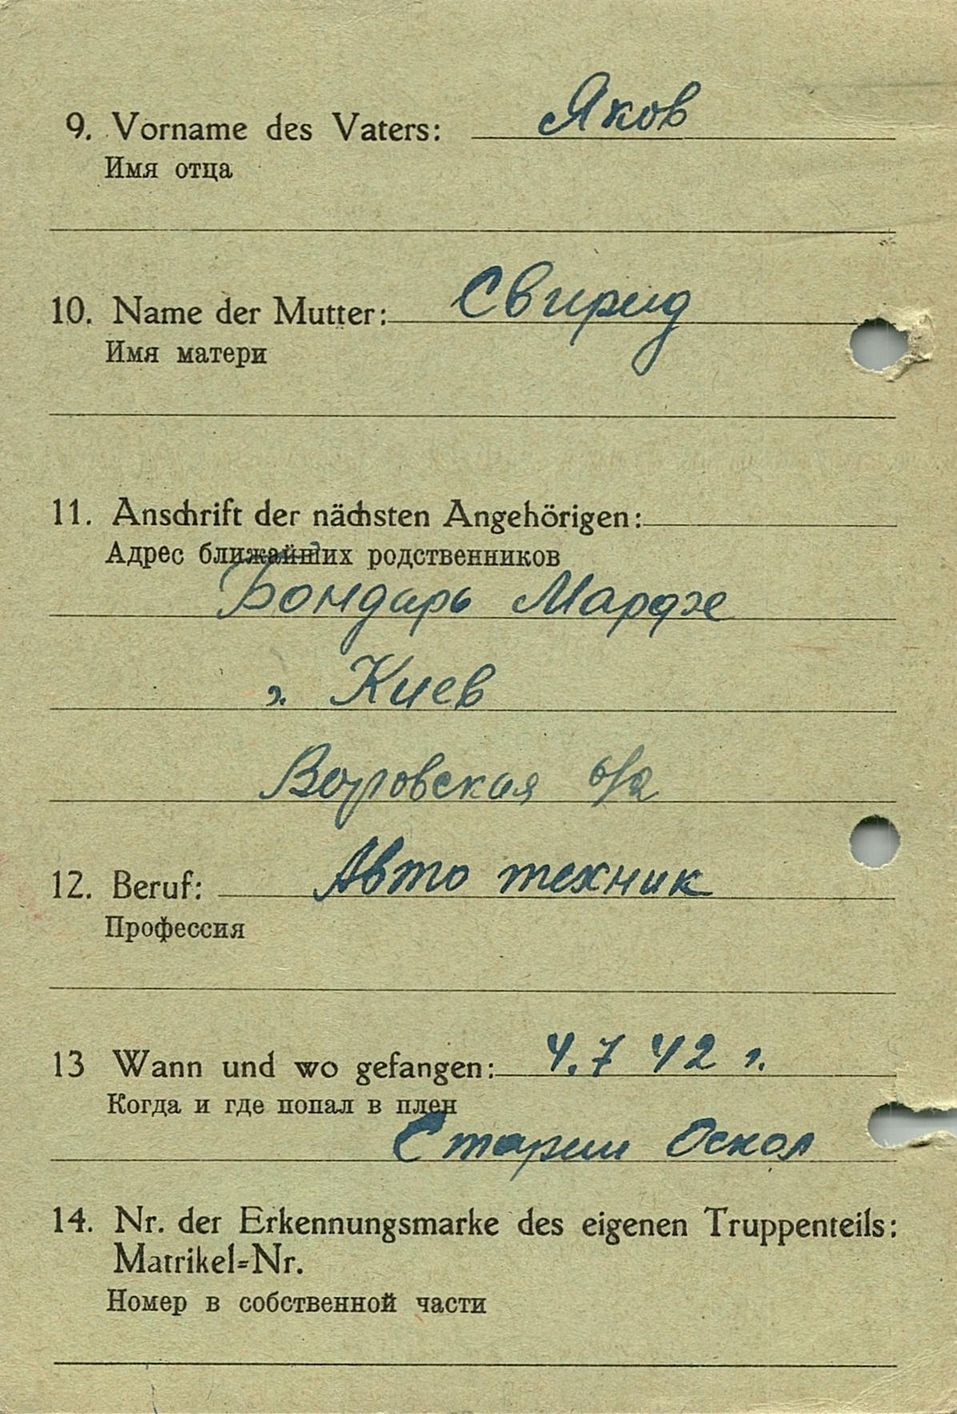 9. Vorname des Vaters: Яков
Имя отца
10. Name der Mutter: Свирид
Имя матери
11. Anschrift der nächsten Angehörigen:
Адрес ближайших родственников
Бондарь Марфе
г. Киев
Воровская
12. Beruf: Авто техник
Профессия
13 Wann und wo gefangen: 4.7 42 г.
Когда и где попал в плен
Старии Оскол
14. Nr. der Erkennungsmarke des eigenen Truppenteils:
Matrikel=Nr.
Номер в собственной части